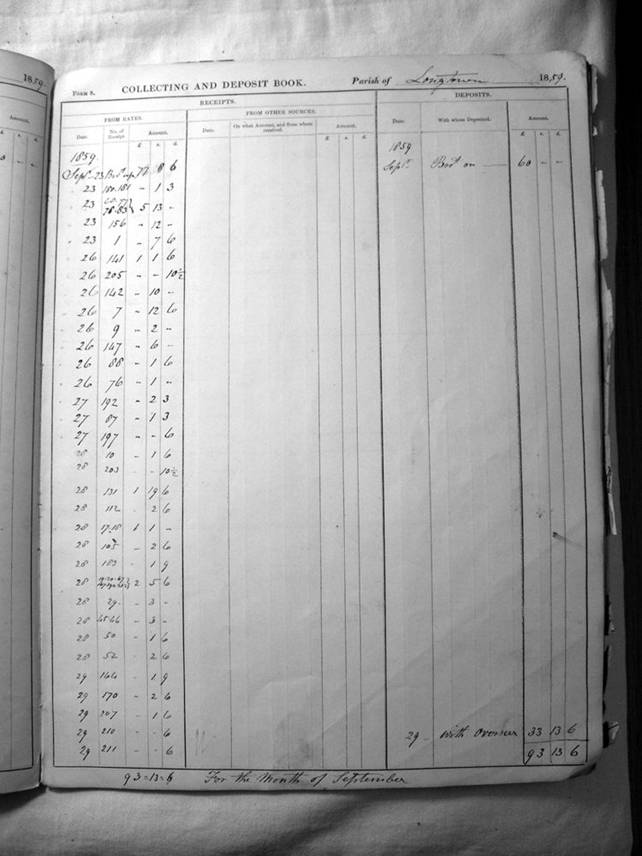 1859
FORM 8. COLLECTING AND DEPOSIT BOOK. Parish of Longtown 1859.
RECEIPTS. DEPOSITS.
FROM RATES. FROM OTHER SOURCES.
Date. No. of Receipt Amount. Date. On what Account, and from whom received. Amount. Date. With whom Deposited. Amount.
£ s. d. £ s. d. £ s. d.
1859 1859
Septr. 23 8 6 Septr. on 60 - -
23 150.151 - 1 3
23 78-83 5 13 -
23 156 - 12 -
23 1 - 7 6
26 141 1 1 6
26 205 - - 10½
26 142 - 10 -
26 7 - 12 6
26 9 - 2 -
26 147 - 6 -
26 88 - 1 6
26 76 - 1 -
27 192 - 2 3
27 87 - 1 3
27 197 - - 6
28 10 - 1 6
28 203 - - 10½
28 131 1 19 6
28 112 - 2 6
28 17.18 1 1 -
28 - 2 6
28 - 1 9
28 2 5 6
28 29 - 3 -
28 - 3 -
28 50 - 1 6
28 52 - 2 6
29 166 - 1 9
29 170 - 2 6
29 207 - 1 6
29 210 - - 6 29 - with Overseer 33 13 6
29 211 - - 6 93 13 6
93=13=6 For the Month of September